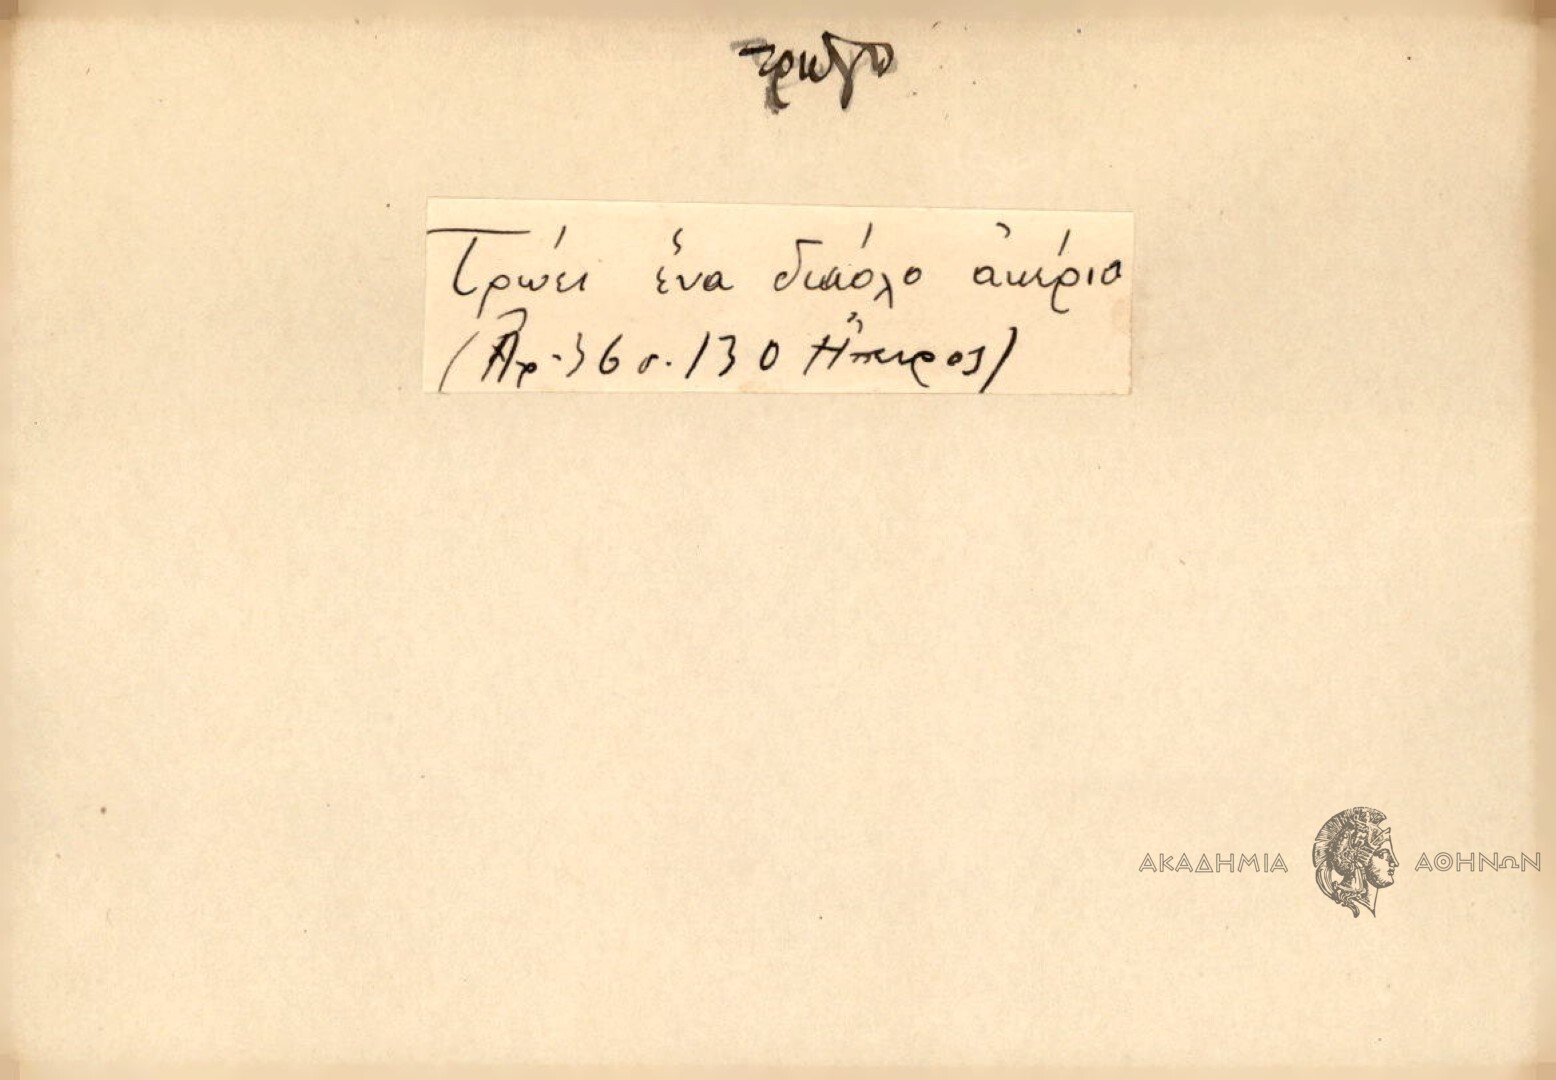 τρώγω
Τρώει ἕνα διάολο ἀκέριο
(Ἀρ. 36 σ. 130 Ἤπειρος)
ΑΚΑΔΗΜΙΑ ΑΘΗΝΩΝ